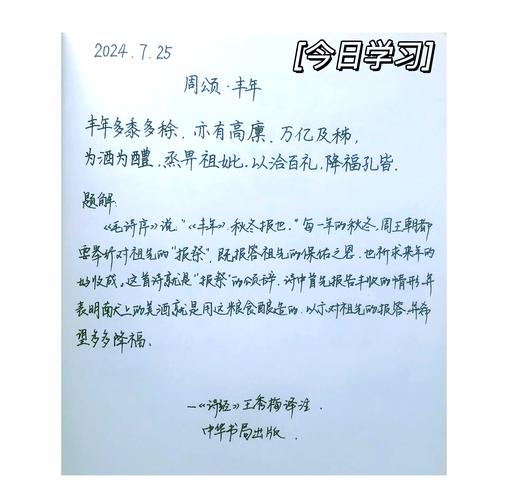 2024.7.25
[今日学习]
周颂·丰年
丰年多黍多稌,亦有高廪,万亿及秭,
为酒为醴,烝畀祖妣。以洽百礼,降福孔皆。
题解:
《毛诗序》说:"《丰年》,秋冬报也。"每一年的秋冬,周王朝都
要举行对祖先的"报祭",既报答祖先的保佑之恩,也祈求来年的
好收成。这首诗就是"报祭"的颂辞,诗中首先报告丰收的情形,并
表明献上的美酒就是用这粮食酿造的,以示对祖先的报答,并希
望多多降福。
—《诗经》王秀梅译注.
中华书局出版.